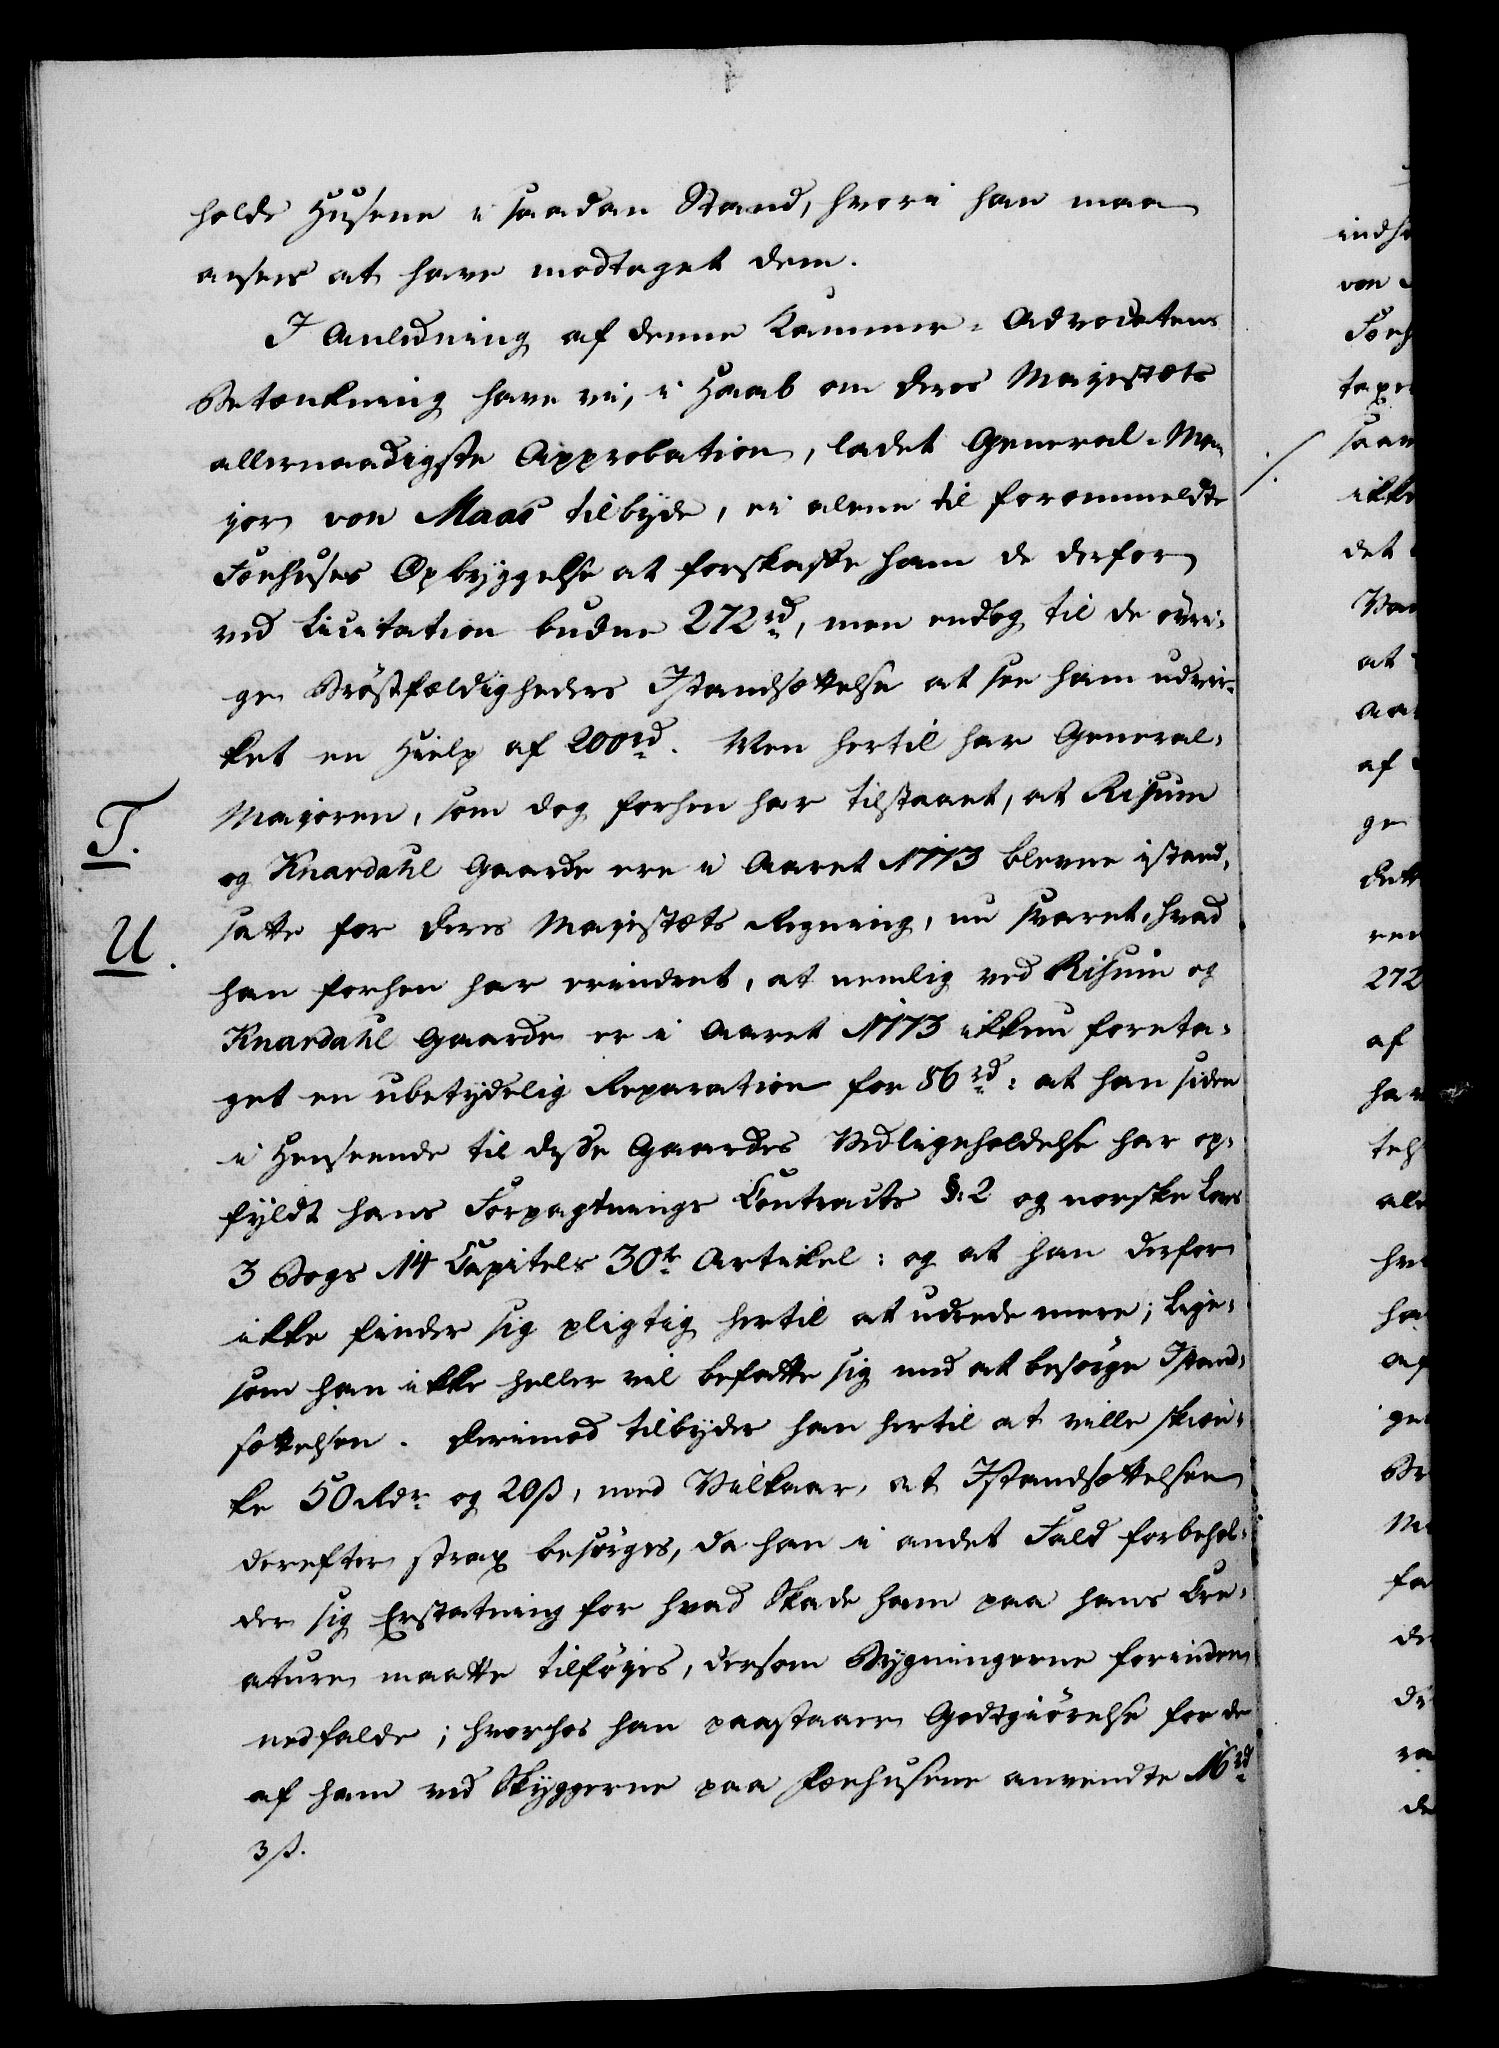 holde Husene i saadan Stand, hvori han maa
ansees at have modtaget dem.
I Anledning af denne Kammer-Advocatens
Betænkning have vi, i Haab om Deres Majestæts
allernaadigste Approbation, ladet General-Ma-
jor von Maas tilbyde, ei alene til forommeldte
Foehuses Opbyggelse at forskaffe ham de derfor
ved Licitation budne 272 rd, men endog til de övri-
ge Bröstfældigheders Istandsættelse at see ham udvir-
ket en Hielp af 200 rd. Men hertil har General-
T. Majoren, som dog forhen har tilstaaet, at Risum
og Knardahl Gaarde ere i Aaret 1773 blevne istand-
U. satte for Deres Majestæts Regning, nu svaret, hvad
han forhen har erindret, at nemlig ved Risum og
Knardahl Gaarde er i Aaret 1773 ikkun foreta-
get en ubetydelig Reparation for 86 rd: at han siden
i Henseende til disse Gaardes Vedligeholdelse har op-
fyldt hans Forpagtnings Contracts §: 2 og norske Lovs
3 Bogs 14 Capitels 30te Artikel: og at han derfor
ikke finder sig pligtig hertil at udrede mere; lige-
som han ikke heller vil befatte sig med at besörge Istand-
sættelsen. Derimod tilbyder han hertil at ville skien-
ke 50 Rdr og 20 ß, med Vilkaar, at Istandsættelsen
derefter strax besörges, da han i andet Fald forbehol-
der sig Erstatning for hvad Skade ham paa hans Cre-
ature maatte tilföjes, dersom Bygningerne forinden
nedfalde; hvorhos han paastaaer Godtgiörelse for de
af ham ved Skyggerne paa Foehusene anvendte 16 rd
3 ß.